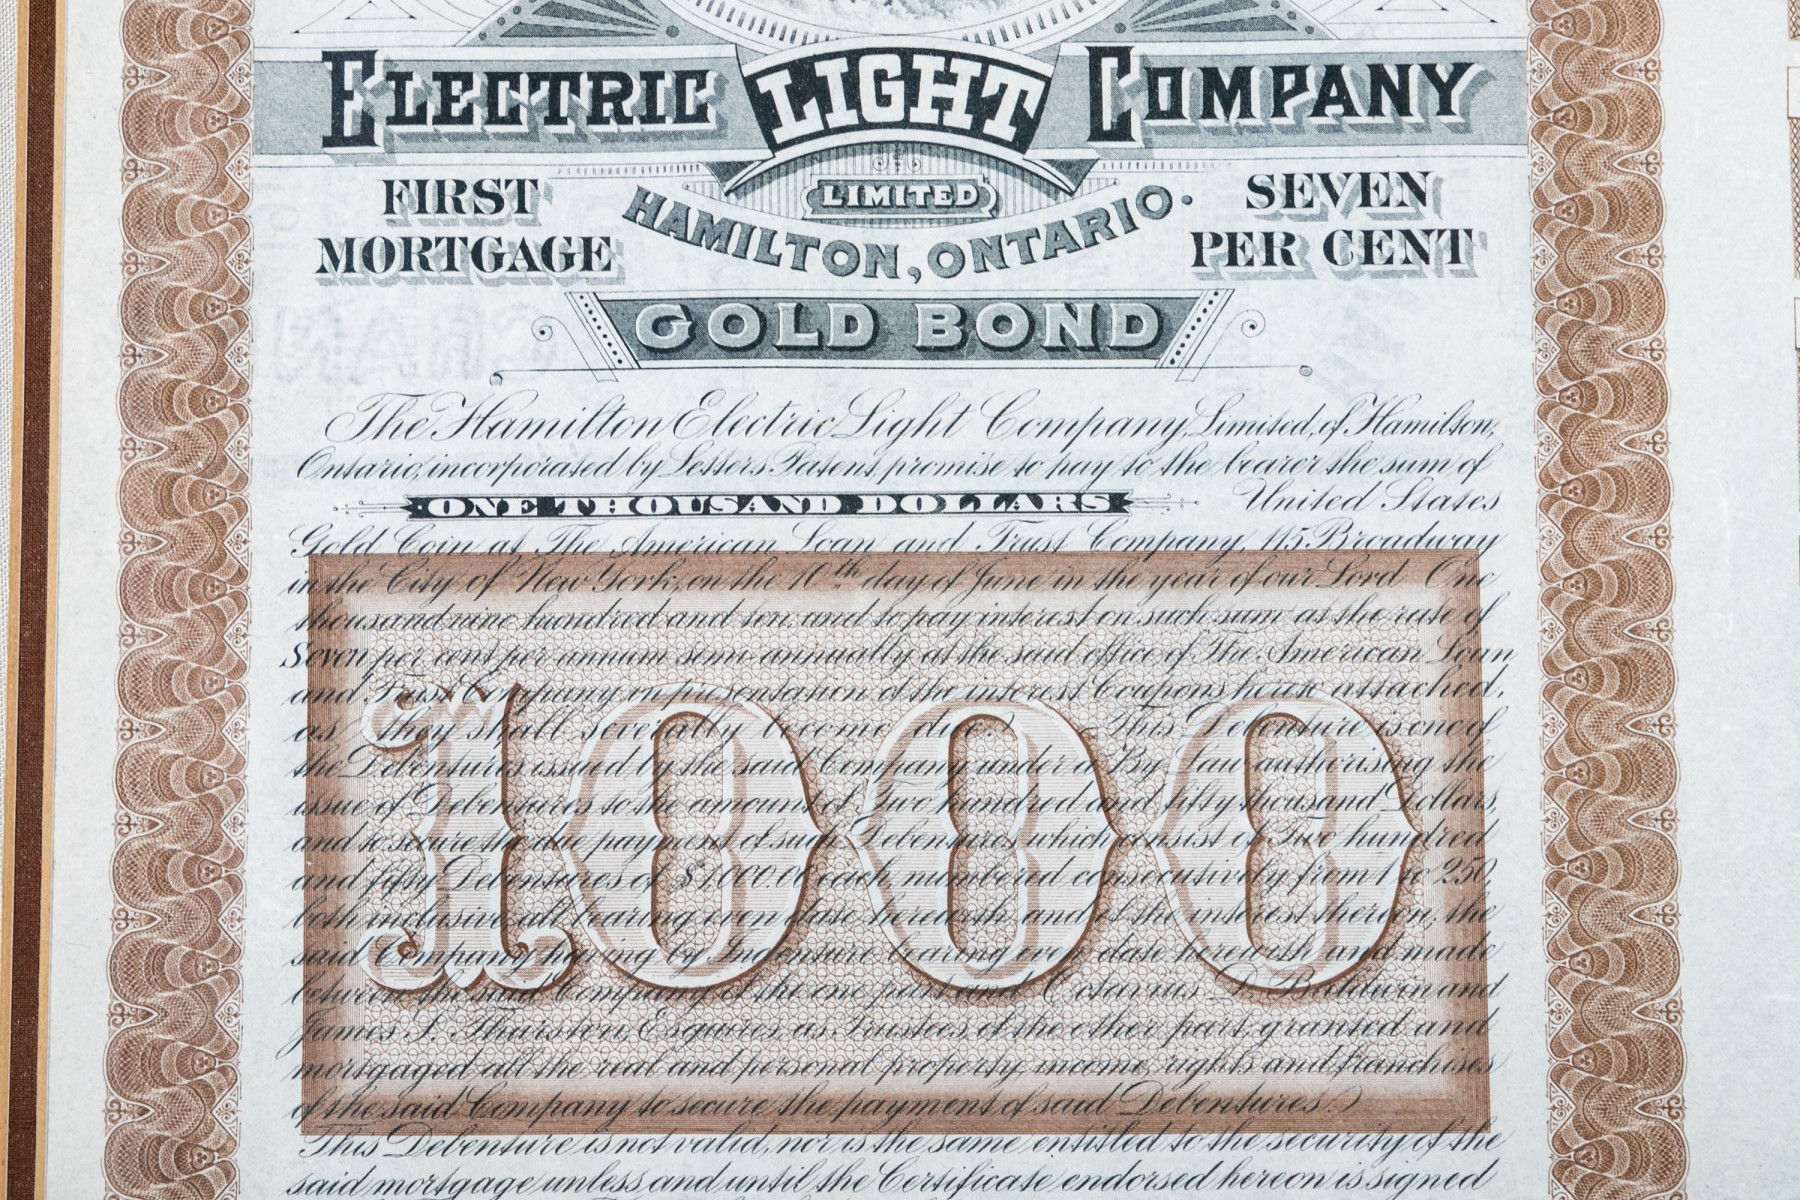 ELECTRIC LIGHT COMPANY
LIMITED
FIRST MORTGAGE
HAMILTON, ONTARIO.
SEVEN PER CENT
GOLD BOND
The Hamilton Electric Light Company, Limited, of Hamilton,
Ontario, incorporated by Letters Patent, promise to pay to the bearer the sum of
ONE THOUSAND DOLLARS United States
Gold Coin at The American Loan and Trust Company, 115 Broadway
in the City of New York, on the 10th day of June in the year of our Lord One
thousand nine hundred and ten and to pay interest on such sum at the rate of
Seven per cent per annum semi-annually at the said office of The American Loan
and Trust Company on presentation of the interest Coupons hereto attached,
as they shall severally become due. This Debenture is one of
the Debentures issued by the said Company under a By Law authorising the
issue of Debentures to the amount of Two hundred and fifty thousand Dollars,
and to secure the due payment of such Debentures which consist of Two hundred
and fifty Debentures of $1,000.00 each numbered consecutively from 1 to 250
both inclusive all bearing even date herewith and of the interest thereon, the
said Company having by Indenture bearing even date herewith and made
between the said Company of the one part and Octavius D. Baldwin and
James S. Thurston, Esquires, as Trustees, of the other part, granted and
mortgaged all the real and personal property, income, rights and franchises
of the said Company to secure the payment of said Debentures.
1000
This Debenture is not valid, nor is the same entitled to the security of the
said mortgage unless and until the Certificate endorsed hereon is signed